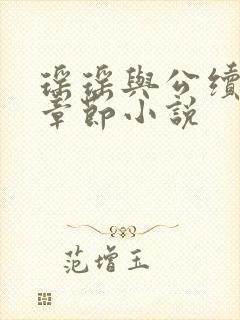 瑶瑶與公續
章節小說
范增玉